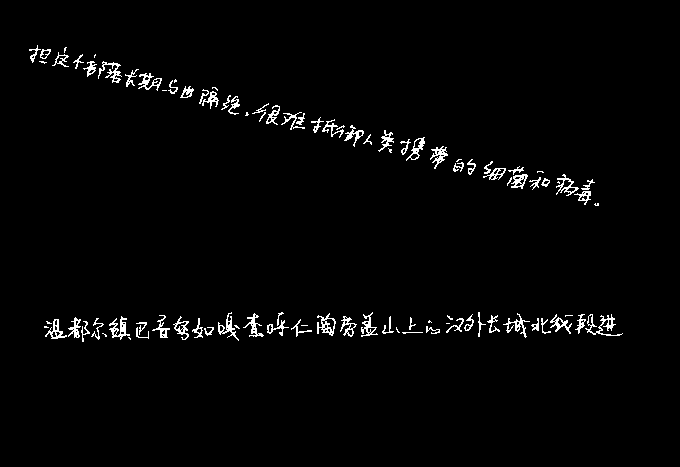 担这个部落长期与世隔绝,很难抵御人类携带的细菌和病毒。
温都尔镇巴音努如嘎查呼仁陶劳盖山上的汉外长城北线段进